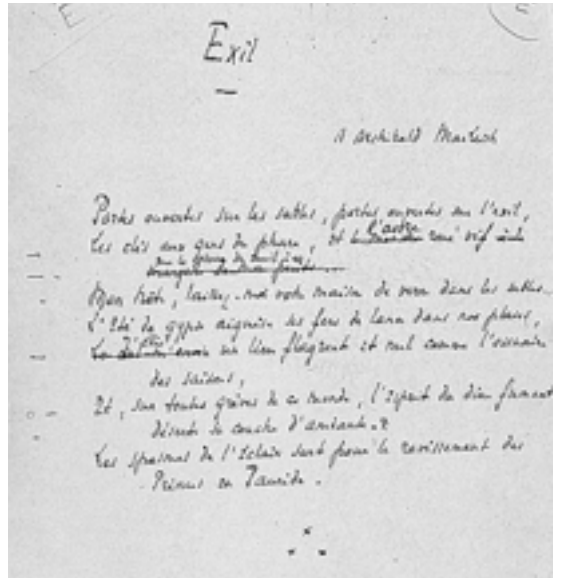 E
Exil
A Archibald MacLeish
Portes ouvertes sur les sables, portes ouvertes sur l'exil,
l'astre
Les clés aux gens du phare, et roué vif
sur la pierre du seuil :
Mon hôte, laissez-moi votre maison de verre dans les sables...
L'Eté de gypse aiguise ses fers de lance dans nos plaies,
J'élis
un lieu flagrant et nul comme l'ossuaire
des saisons,
Et, sur toutes grèves de ce monde, l'esprit du dieu fumant
déserte sa couche d'amiante.
Les spasmes de l'éclair sont pour le ravissement des
Princes en Tauride.